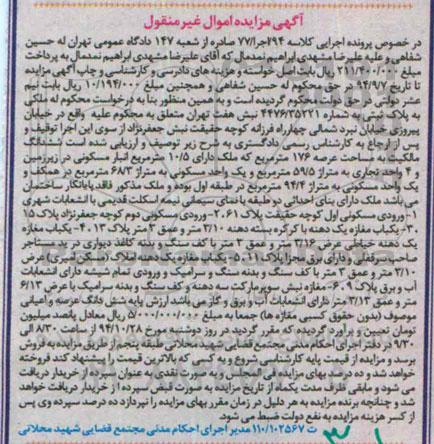 آگهی مزایده اموال غیر منقول
در خصوص پرونده اجرایی کلاسه ۲۹۴اجرا/۷۷ صادره از شعبه ۱۴۷ دادگاه عمومی تهران له حسین
شفاهی و علیه علیرضا مشهدی ابراهیم نمدمال که آقای علیرضا مشهدی ابراهیم نمدمال به پرداخت
مبلغ ۲۱۱/۴۰۰/۰۰۰ ریال بابت اصل خواسته و هزینه های دادرسی و کارشناسی و چاپ آگهی مزایده
تا تاریخ ۹۴/۹/۷ در حق محکوم له حسین شفاهی و همچنین مبلغ ۱۰/۱۹۴/۰۰۰ ریال بابت نیم
عشر دولتی در حق دولت محکوم گردیده است و به همین منظور بنا به درخواست محکوم له ملکی
به پلاک ثبتی به شماره ۴۴۷۶/۳۵۲۷۱ نبش هفت تهران متعلق به محکوم علیه واقع در خیابان
پیروزی خیابان نبرد شمالی چهارراه فرزانه کوچه حقیقت نبش جعفرنژاد از سوی این اجرا توقیف و
پس از ارجاع به کارشناس رسمی دادگستری به شرح زیر توصیف و ارزیابی شده است ششدانگ
مالکیت و مساحت عرصه ۱۷۶ مترمربع که ملک دارای ۱۰/۵ مترمربع انبار مسکونی در زیرزمین
و ۴ واحد تجاری به متراژ ۵۹/۵ مترمربع و یک واحد مسکونی به متراژ ۶۸/۳ مترمربع در همکف و
یک واحد مسکونی به متراژ ۹۴/۴ مترمربع در طبقه اول بوده و ملک مذکور فاقد پایانکار ساختمان
می باشد ملک دارای بنای احداثی دو طبقه با نمای سیمانی نیمه اسکلت قدیمی با انشعابات شهری
۱- ورودی مسکونی اول کوچه حقیقت پلاک ۲.۶۱- ورودی مسکونی دوم کوچه جعفرنژاد پلاک ۱۵
۳- یکباب مغازه یک دهنه با کرکره بسته دهنه ۲/۱۰ متر و عمق ۳ متر پلاک ۴.۱۳- یکباب مغازه
یک دهنه خیاطی عرض ۲/۱۶ متر و عمق ۳ متر با کف سنگ و بدنه کاغذ دیواری در ید مستاجر
صاحب سرقفلی و دارای برق مجزا پلاک ۵.۱۱- یکباب مغازه یک دهنه املاک (مسکن نمیری) عرض
۲/۱۰ متر و عمق ۳ متر با کف سنگ و بدنه سنگ و سرامیک و ورودی تمام شیشه دارای انشعابات
آب و برق پلاک ۶.۰۹- مغازه نبش سوپرمارکت سه دهنه و کف سنگ و بدنه سرامیک با عرض ۶/۱۳
متر و عمق ۳/۱۳ متر دارای انشعابات آب و برق و گاز می باشد ارزش پایه شش دانگ عرصه و اعیانی
موصوف (بدون حقوق کسبی مغازه ها) جمعا به مبلغ ۵/۰۰۰/۰۰۰/۰۰۰ ریال معادل پانصد میلیون
تومان تعیین و برآورد گردیده که مقرر گردید در روز دوشنبه مورخ ۹۴/۱۰/۲۸ از ساعت ۸/۳۰ الی
۹/۳۰ در دفتر اجرای احکام مدنی مجتمع قضایی شهید محلاتی طبقه پنجم از طریق مزایده به فروش
برسد و مزایده از قیمت پایه کارشناسی شروع و به کسی که بالاترین قیمت را پیشنهاد کند فروخته
خواهد شد و ده درصد بهای مزایده فی المجلس و به صورت نقدی به عنوان سپرده از خریدار دریافت
می شود و مابقی ظرف مدت یکماه از تاریخ مزایده به صورت قبض سپرده از خریدار دریافت خواهد
شد و چنانچه برنده مزایده به هر دلیل در زمان مقرر بهای مزایده را نپردازد ده درصد سپرده وی پس
از کسر هزینه مزایده به نفع دولت ضبط می شود.
ت ۱۱۰/۱۰۲۵۶۷ مدیر اجرای احکام مدنی مجتمع قضایی شهید محلاتی